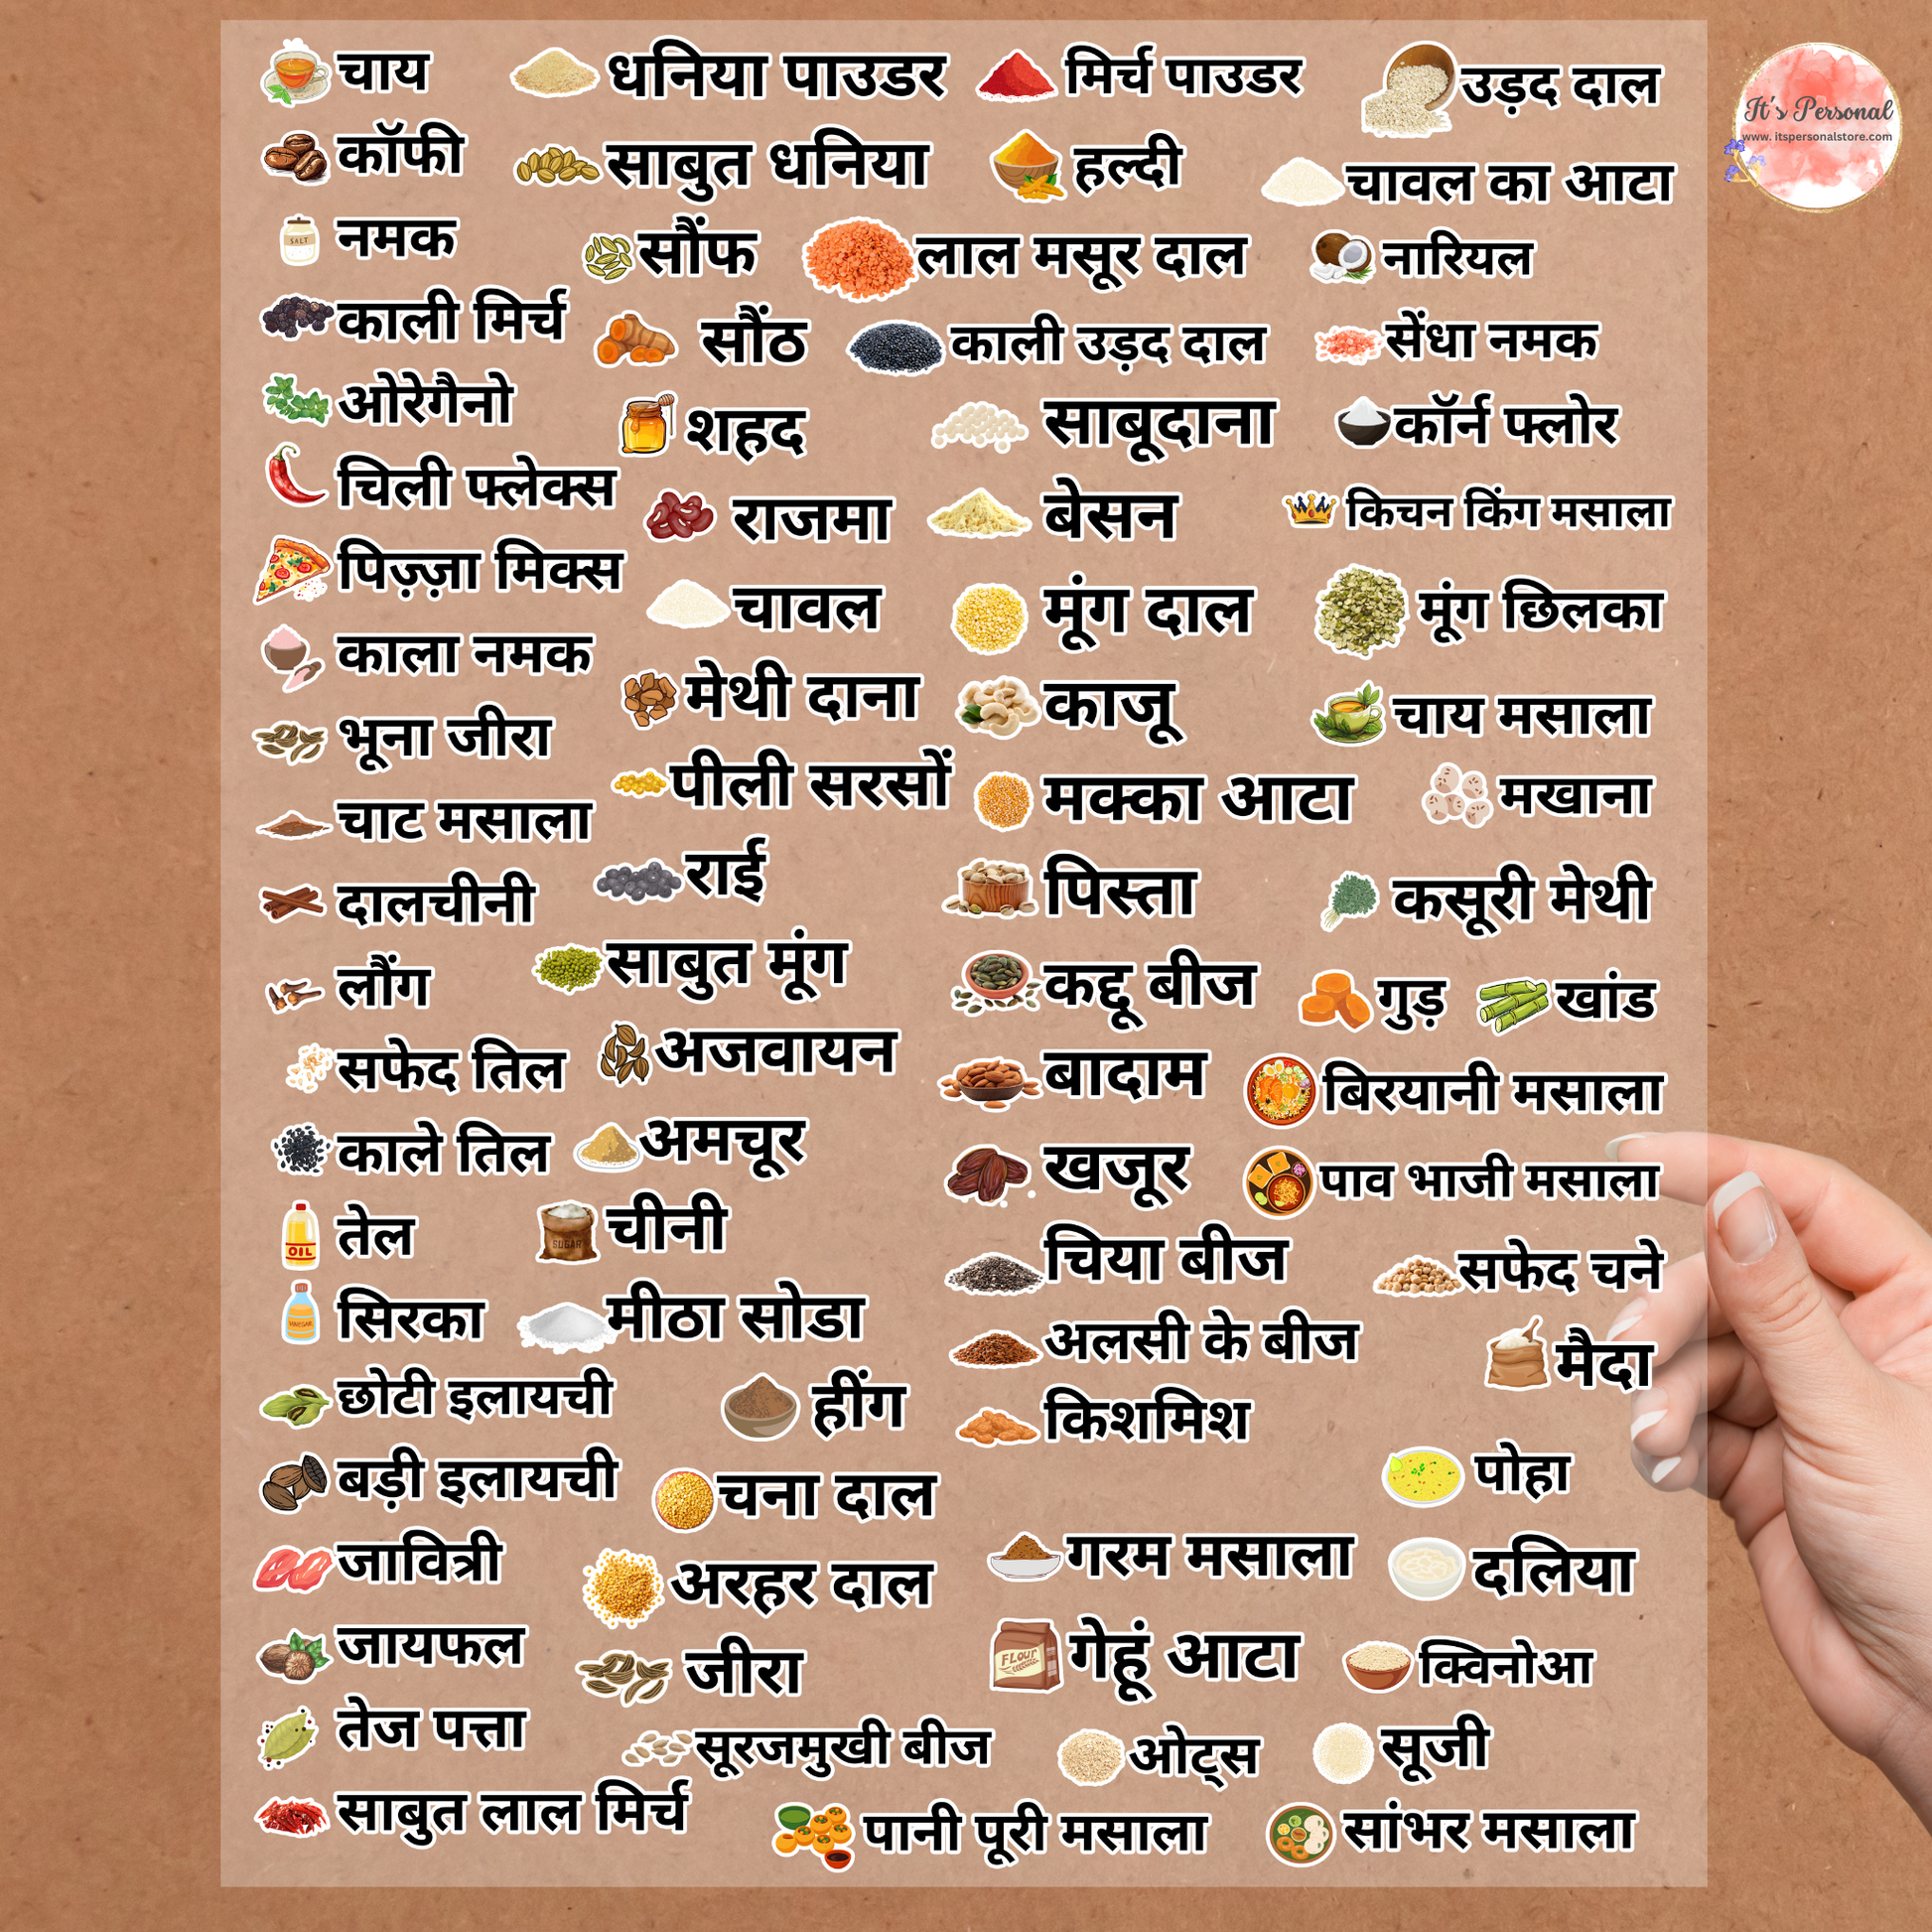 चाय
कॉफी
नमक
काली मिर्च
ओरेगैनो
चिली फ्लेक्स
पिज़्ज़ा मिक्स
काला नमक
भूना जीरा
चाट मसाला
दालचीनी
लौंग
सफेद तिल
काले तिल
तेल
सिरका
छोटी इलायची
बड़ी इलायची
जावित्री
जायफल
तेज पत्ता
साबुत लाल मिर्च
धनिया पाउडर
साबुत धनिया
सौंफ
सौंठ
शहद
राजमा
चावल
मेथी दाना
पीली सरसों
राई
साबुत मूंग
अजवायन
अमचूर
चीनी
मीठा सोडा
हींग
चना दाल
अरहर दाल
जीरा
सूरजमुखी बीज
पानी पूरी मसाला
मिर्च पाउडर
हल्दी
लाल मसूर दाल
काली उड़द दाल
साबूदाना
बेसन
मूंग दाल
काजू
मक्का आटा
पिस्ता
कद्दू बीज
बादाम
खजूर
चिया बीज
अलसी के बीज
किशमिश
गरम मसाला
गेहूं आटा
ओट्स
उड़द दाल
चावल का आटा
नारियल
सेंधा नमक
कॉर्न फ्लोर
किचन किंग मसाला
मूंग छिलका
चाय मसाला
मखाना
कसूरी मेथी
गुड़
खांड
बिरयानी मसाला
पाव भाजी मसाला
सफेद चने
मैदा
पोहा
दलिया
क्विनोआ
सूजी
सांभर मसाला
SALT
OIL
VINEGAR
SUGAR
FLOUR
It's Personal
www. itspersonalstore.com